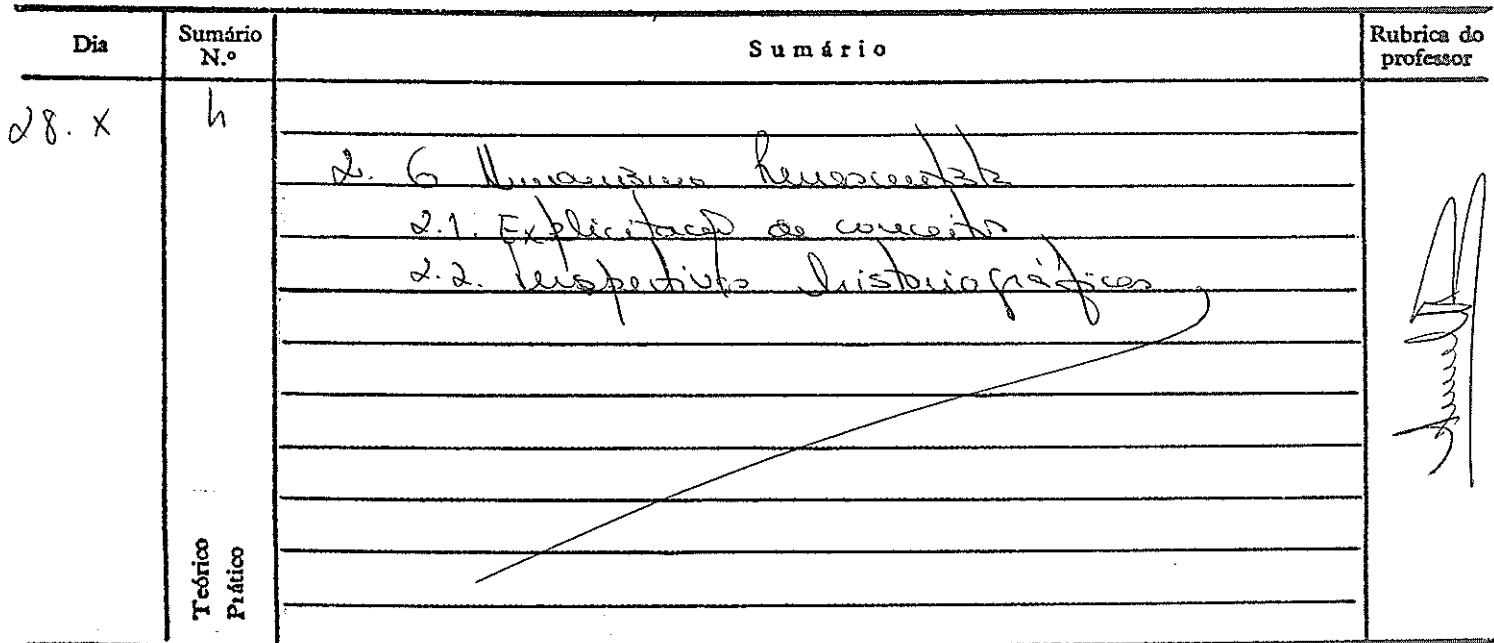 Dia Sumário N.º Sumário Rubrica do professor
28. X h
2. O Humanismo Renascentista
2.1. Explicitação de conceitos
2.2. Perspectivas historiográficas
Teórico
Prático